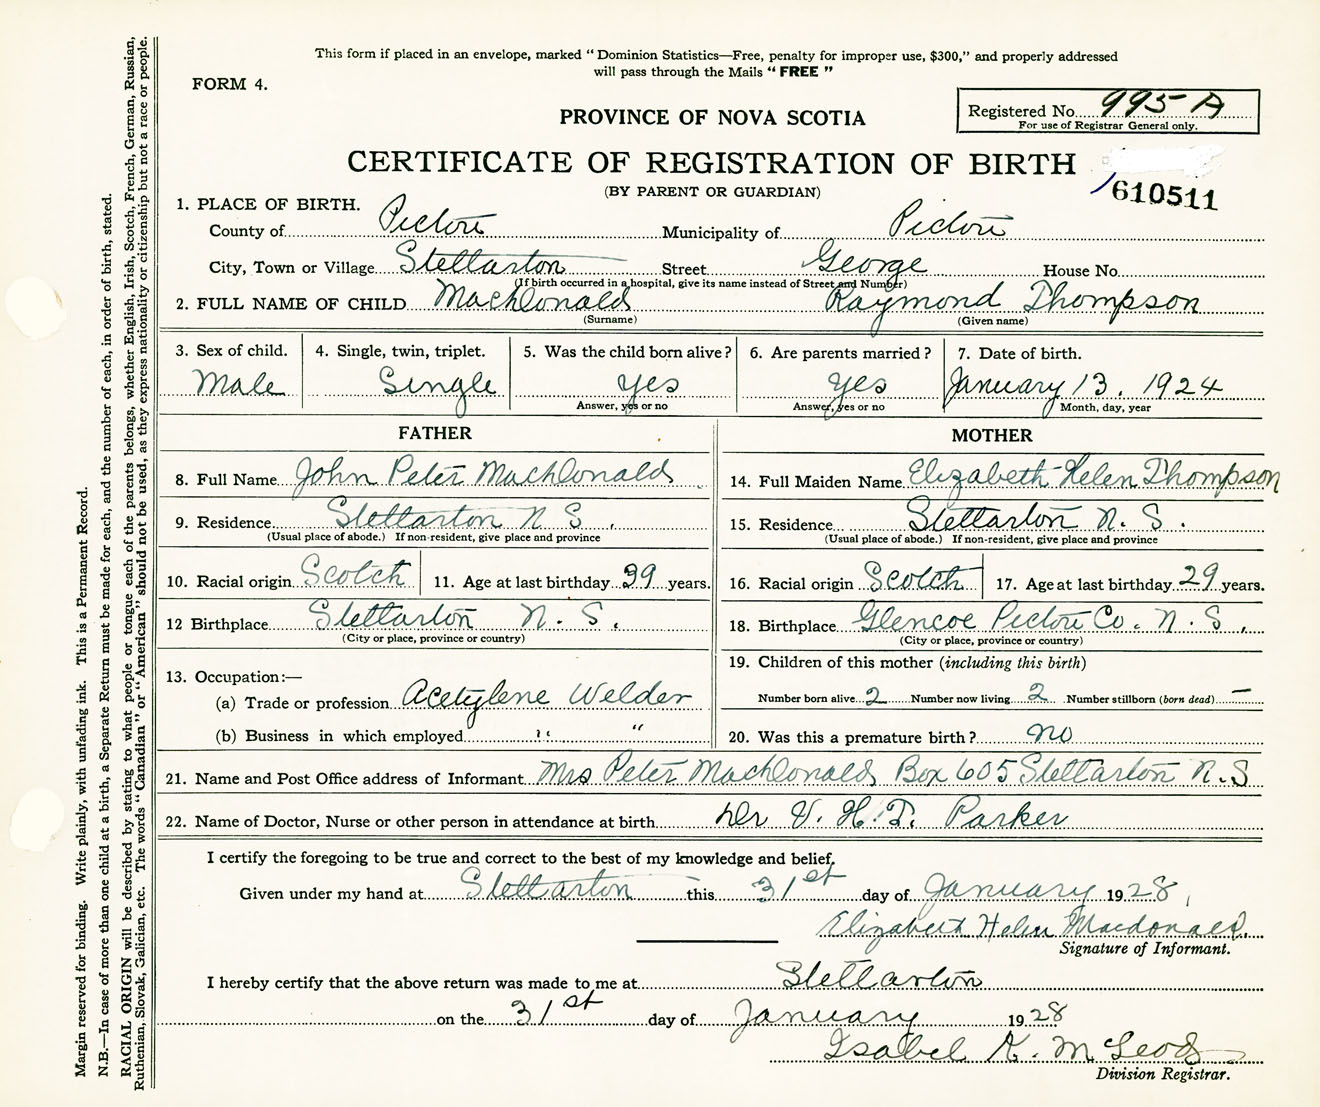 This form if placed in an envelope, marked “ Dominion Statistics—Free, penalty for improper use, $300,” and properly addressed
will pass through the Mails “ FREE ”
FORM 4.
Registered No. 995 A
For use of Registrar General only.
PROVINCE OF NOVA SCOTIA
CERTIFICATE OF REGISTRATION OF BIRTH
610511
(BY PARENT OR GUARDIAN)
1. PLACE OF BIRTH.
County of Pictou Municipality of Pictou
City, Town or Village Stellarton Street George House No.
(If birth occurred in a hospital, give its name instead of Street and Number)
2. FULL NAME OF CHILD MacDonald Raymond Thompson
(Surname) (Given name)
3. Sex of child. 4. Single, twin, triplet. 5. Was the child born alive? 6. Are parents married? 7. Date of birth.
Male Single yes yes January 13. 1924
Answer, yes or no Answer, yes or no Month, day, year
FATHER MOTHER
8. Full Name John Peter MacDonald 14. Full Maiden Name Elizabeth Helen Thompson
9. Residence Stellarton N S . 15. Residence Stellarton N. S .
(Usual place of abode.) If non-resident, give place and province (Usual place of abode.) If non-resident, give place and province
10. Racial origin Scotch 11. Age at last birthday 39 years. 16. Racial origin Scotch 17. Age at last birthday 29 years.
12 Birthplace Stellarton N. S. 18. Birthplace Glencoe Pictou Co. N. S.
(City or place, province or country) (City or place, province or country)
13. Occupation:— 19. Children of this mother (including this birth)
(a) Trade or profession Acetylene Welder Number born alive 2 Number now living 2 Number stillborn (born dead) —
(b) Business in which employed " " 20. Was this a premature birth? no
21. Name and Post Office address of Informant Mrs Peter MacDonald Box 605 Stellarton N.S
22. Name of Doctor, Nurse or other person in attendance at birth Dr V. H. T. Parker
I certify the foregoing to be true and correct to the best of my knowledge and belief.
Given under my hand at Stellarton this 31st day of January 1928,
Elizabeth Helen Macdonald.
Signature of Informant.
I hereby certify that the above return was made to me at Stellarton
on the 31st day of January 1928
Isabel K. McLeod
Division Registrar.
Margin reserved for binding. Write plainly, with unfading ink. This is a Permanent Record.
N.B.—In case of more than one child at a birth, a Separate Return must be made for each, and the number of each, in order of birth, stated.
RACIAL ORIGIN will be described by stating to what people or tongue each of the parents belongs, whether English, Irish, Scotch, French, German, Russian,
Ruthenian, Slovak, Galician, etc. The words “ Canadian ” or “ American ” should not be used, as they express nationality or citizenship but not a race or people.